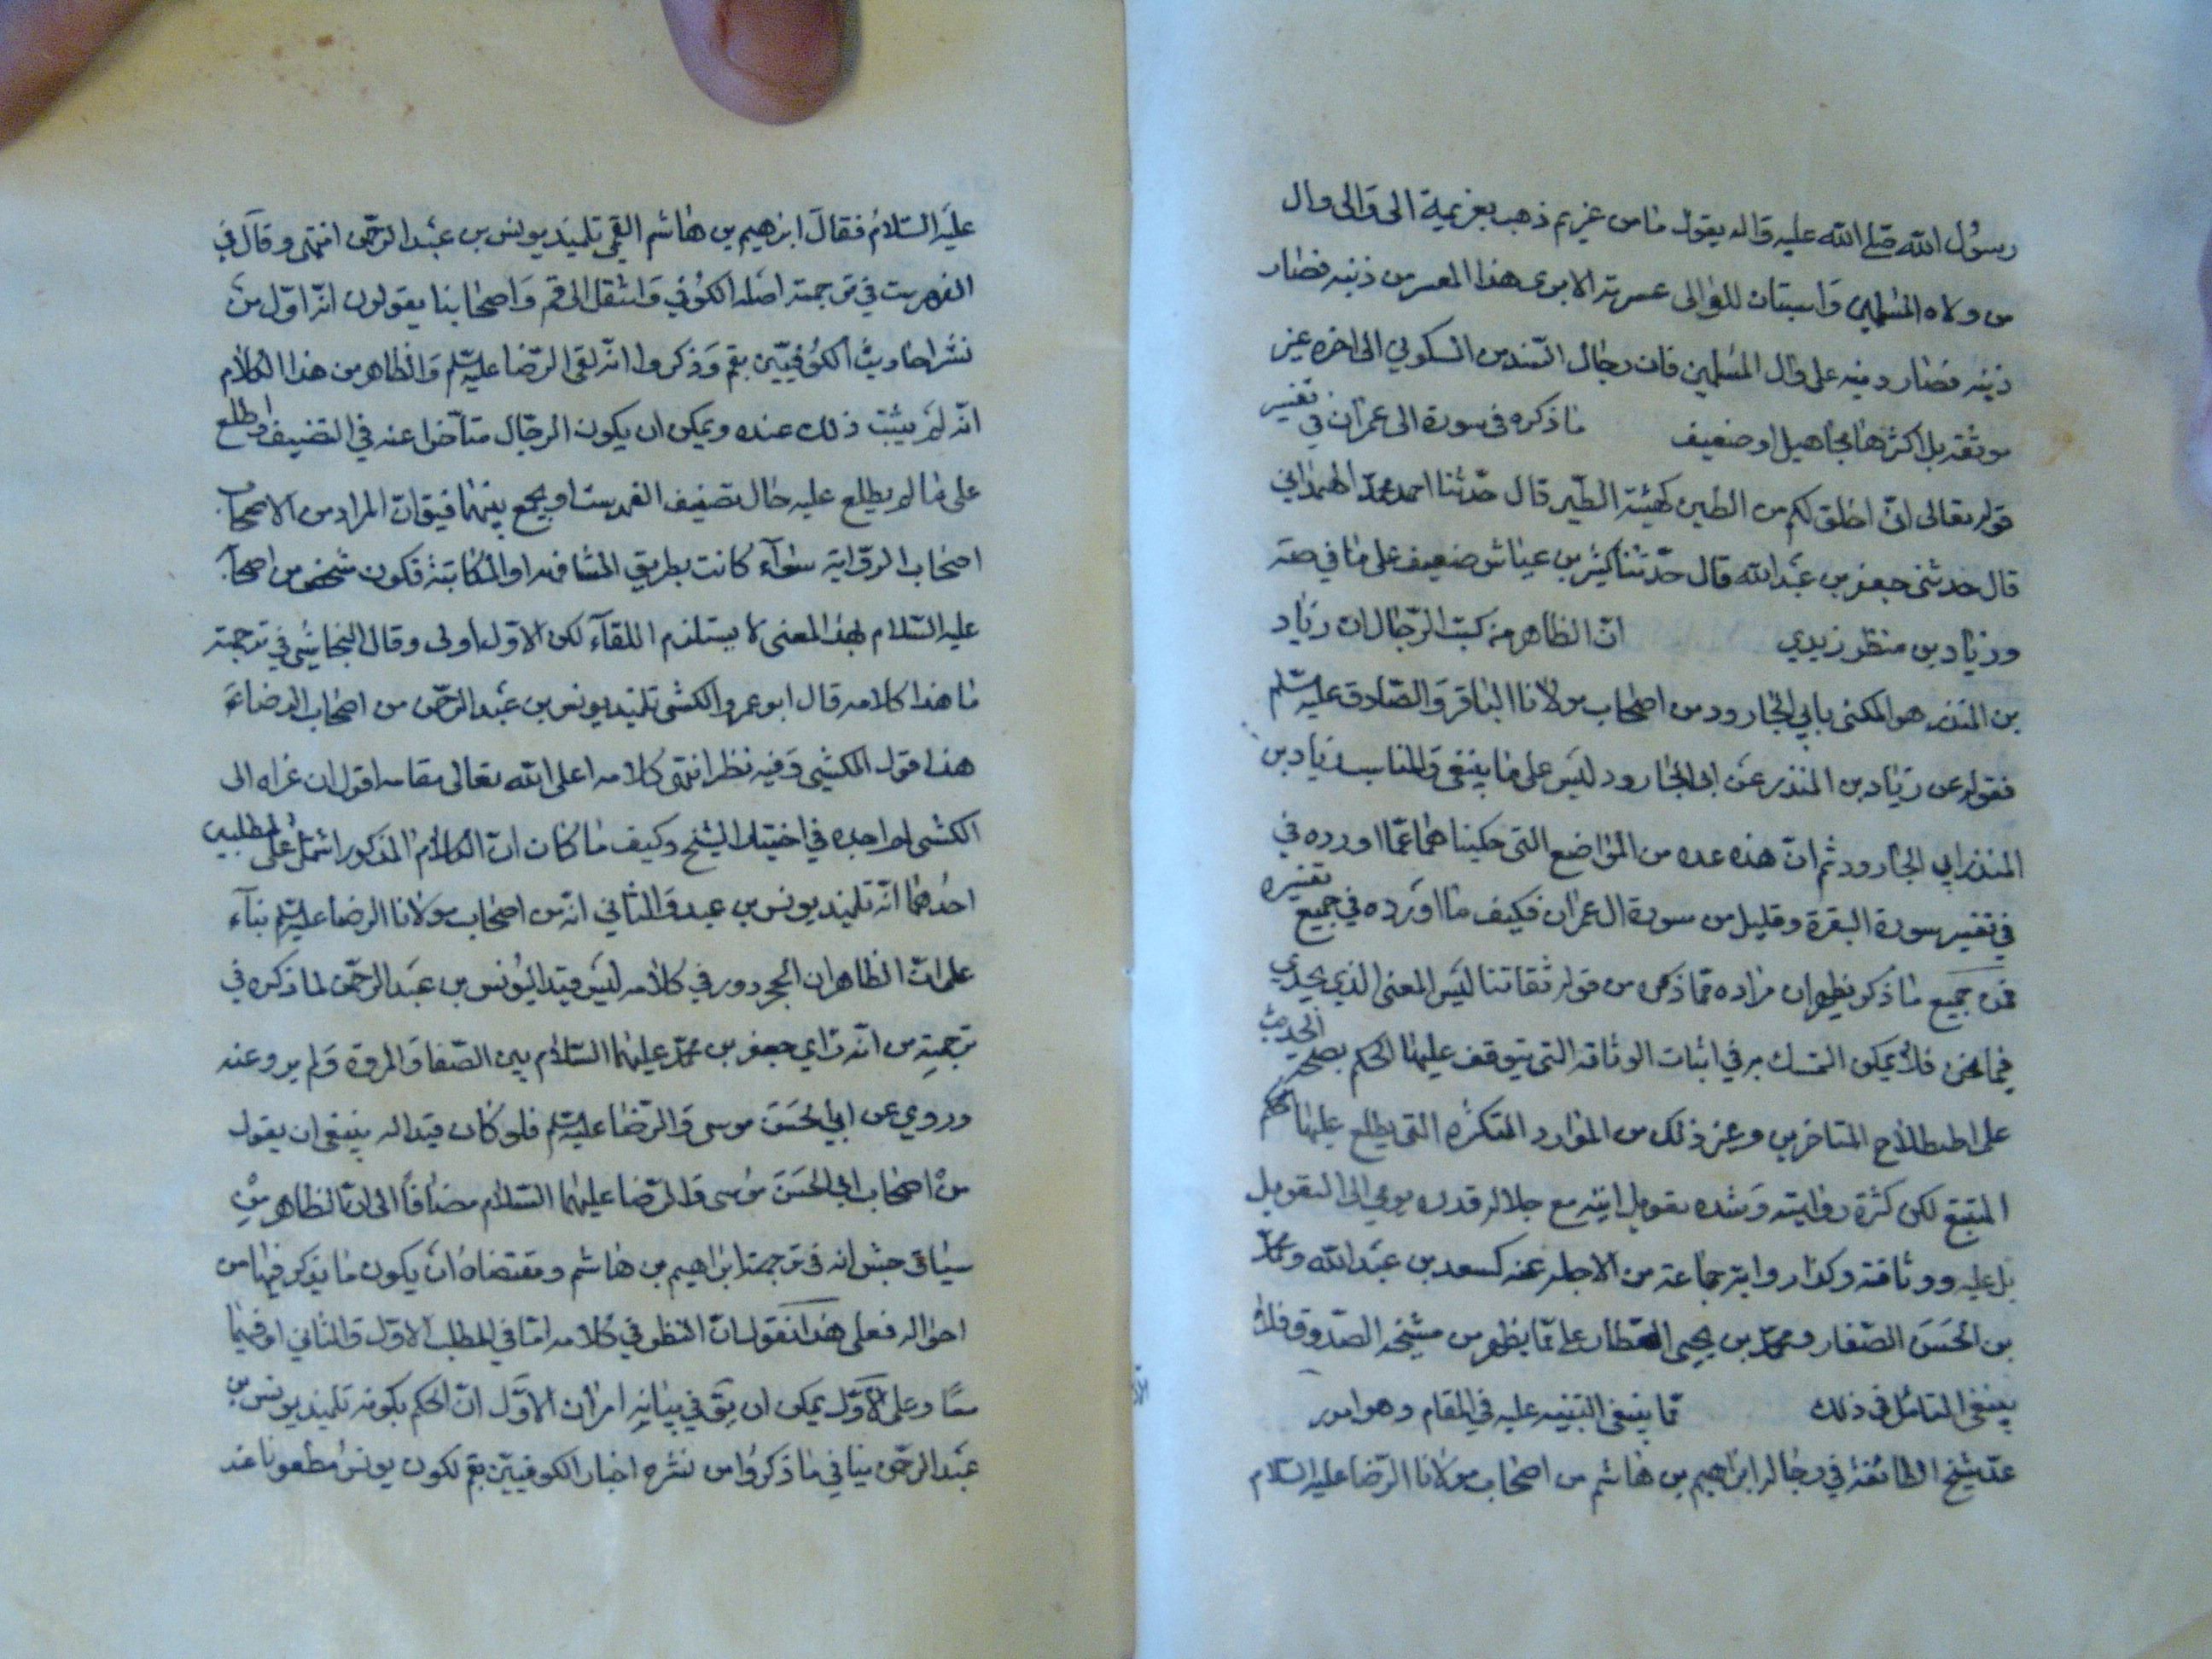 رسول الله صلى الله عليه واله يقول ما من غريم ذهب بغريمه الى والى وال
من ولاه المسلمين واستبان للوالى عسرته الا برى هذا المعسر من دينه فصار
دينه فصار دينه على وال المسلمين فان رجال السند من السكونى الى اخره غير
موثقه بل اكثرها مجاهيل او ضعيف ما ذكره فى سورة ال عمران في تفسير
قوله تعالى انى اخلق لكم من الطين كهيئة الطير قال حدثنا احمد محمد الهمدانى
قال حدثنى جعفر بن عبد الله قال حدثنا كثير بن عياش ضعيف على ما في صته
وزياد بن منظر زيدي انّ الظاهر من كتب الرجال ان زياد
بن المنذر هو المكنى بابي الجارود من اصحاب مولانا الباقر والصادق عليه السلم
فقوله عن زياد بن المنذر عن ابى الجارود ليس على ما ينبغى والمناسب زياد بن
المنذر ابي الجارود ثم انّ هذه عده من المواضع التى حكيناها عمّا اورده في
في تفسير سورة البقرة وقليل من سورة ال عمران فكيف ما اورده في جميع تفسيره
فمن جميع ما ذكر يظهر ان مراده ممّا ذكره من قوله ثقاتنا ليس المعنى الذى يجدي
فيما نحن فلا يمكن التمسك به في اثبات الوثاقة التى يتوقف عليها الحكم بصحة الحديث
على اصطلاح المتاخرين وغير ذلك من الموارد المتكثره التى يطلع عليها
المتتبع لكن كثرة روايته وشده تعويل ابنه مع جلاله قدره يومي الى التعويل
بل عليه ووثاقته وكذا رواية جماعة من الاجله عنه كسعد بن عبد الله ومحمد
بن الحسن الصفار ومحمد بن يحيى العطار على ما يظهر من مشيخه الصدوق فلا
ينبغى التامل فى ذلك ممّا ينبغى التنبيه عليه في المقام وهو امور
عدّ شيخ الطائفة في رجاله ابراهيم بن هاشم من اصحاب مولانا الرضا عليه السلام
عليه السلام فقال ابرهيم بن هاشم القمى تلميذ يونس بن عبد الرحمن انتهى وقال في
الفهرست في ترجمته اصله الكوفي وانتقل الى قم واصحابنا يقولون انّه اوّل من
نشر احاديث الكوفيين بقم وذكروا انّه لقى الرضا عليه السلم والظاهر من هذا الكلام
انّه لم يثبت ذلك عنده ويمكن ان يكون الرجال متاخرا عنه في التصنيف اطلع
على ما لم يطلع عليه حال تصنيف الفهرست او يجمع بينهما فيق انّ المراد من الاصحاب
اصحاب الرواية سواء كانت بطريق المشافهه او المكاتبة فكون شخص من اصحاب
عليه السلام بهذا المعنى لا يستلزم اللقاء لكن الاول اولى وقال النجاشي في ترجمته
ما هذا كلامه قال ابو عمرو الكشى تلميذ يونس بن عبد الرحمن من اصحاب الرضا ع
هذا قول الكشي وفيه نظر انتهى كلامه اعلى الله تعالى مقامه اقول ان غراه الى
الكشى لم اجده في اختيار الشيخ وكيف ما كان انّ الكلام المذكور اشتمل على مطلبين
احدهما انّه تلميذ يونس بن عبد والثاني انّه من اصحاب مولانا الرضا عليه السلم بناء
على انّ الظاهر ان المجرور في كلامه ليس قيدا ليونس بن عبد الرحمن لما ذكره في
ترجمته من انّه راى جعفر بن محمد عليهما السلام بين الصفا والمروة ولم يرو عنه
وروي عن ابي الحسن موسى والرضا عليه السلم فلو كان قيدا له ينبغى ان يقول
من اصحاب ابى الحسن موسى والرضا عليهما السلام مضافا الى انّ الظاهر من
سياق حبش انه فى ترجمة ابراهيم بن هاشم ومقتضاه ان يكون ما يذكر فيها من
احواله فعلى هذا نقول انّ النظر في كلامه امّا في المطلب الاول والثاني او فيهما
معًا وعلى الاوّل يمكن ان يق في بيانه امران الاوّل انّ الحكم بكونه تلميذ يونس بن
عبد الرحمن ينافي ما ذكروا من نشره اخبار الكوفيين بقم لكون يونس مطعونا عند